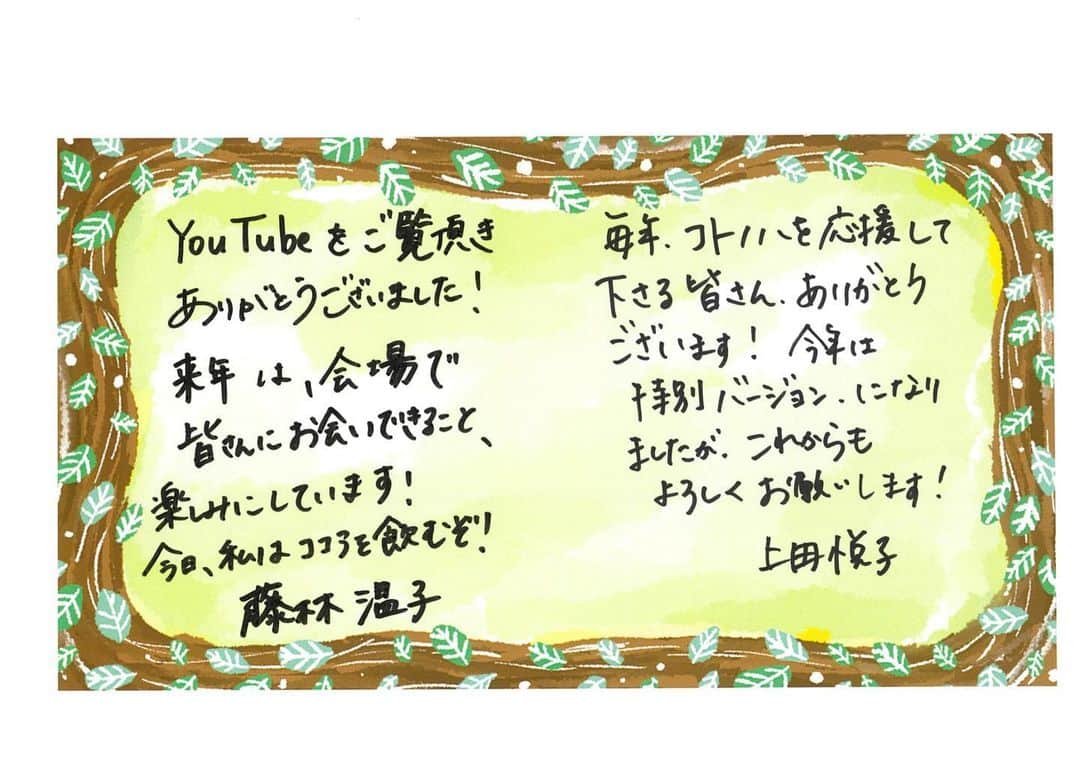 YouTubeをご覧頂き
ありがとうございました！
来年は、会場で
皆さんにお会いできること、
楽しみにしています！
今日、私はココアを飲むぞ！
藤林 温子
毎年、コトノハを応援して
下さる皆さん、ありがとう
ございます！ 今年は
特別バージョン、になり
ましたが、これからも
よろしくお願いします！
上田悦子